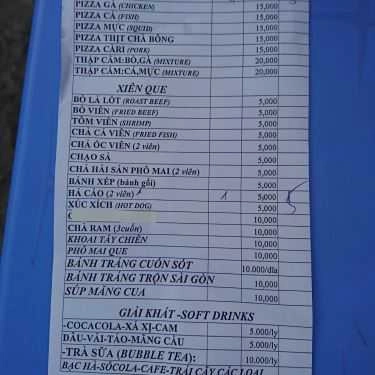 PIZZA GÀ (CHICKEN) 15,000
PIZZA CÁ (FISH) 15,000
PIZZA MỰC (SQUID) 15,000
PIZZA THỊT CHÀ BÔNG 15,000
PIZZA CÀRI (PORK) 15,000
THẬP CẨM:BÒ,GÀ (MIXTURE) 20,000
THẬP CẨM:CÁ,MỰC (MIXTURE) 20,000
XIÊN QUE
BÒ LÁ LỐT (ROAST BEEF) 5,000
BÒ VIÊN (FRIED BEEF) 5,000
TÔM VIÊN (SHRIMP) 5,000
CHẢ CÁ VIÊN (FRIED FISH) 5,000
CHẢ ỐC VIÊN (2 viên) 5,000
CHẠO SẢ 5,000
CHẢ HẢI SẢN PHÔ MAI (2 viên) 5,000
BÁNH XẾP (bánh gối) 5,000
HÁ CẢO (2 viên) 1 5,000
XÚC XÍCH (HOT DOG) 5,000
10,000
CHẢ RAM (3cuốn) 10,000
KHOAI TÂY CHIÊN 10,000
PHÔ MAI QUE 10,000
BÁNH TRÁNG CUỐN SỐT 10.000/dĩa
BÁNH TRÁNG TRỘN SÀI GÒN 10,000
SÚP MĂNG CUA 10,000
GIẢI KHÁT -SOFT DRINKS
-COCACOLA-XÁ XỊ-CAM 5.000/ly
DÂU-VẢI-TÁO-MÃNG CẦU 5.000/ly
-TRÀ SỮA (BUBBLE TEA): 10.000/ly
BẠC HÀ-SÔCOLA-CAFE-TRÁI CÂY CÁC LOẠI